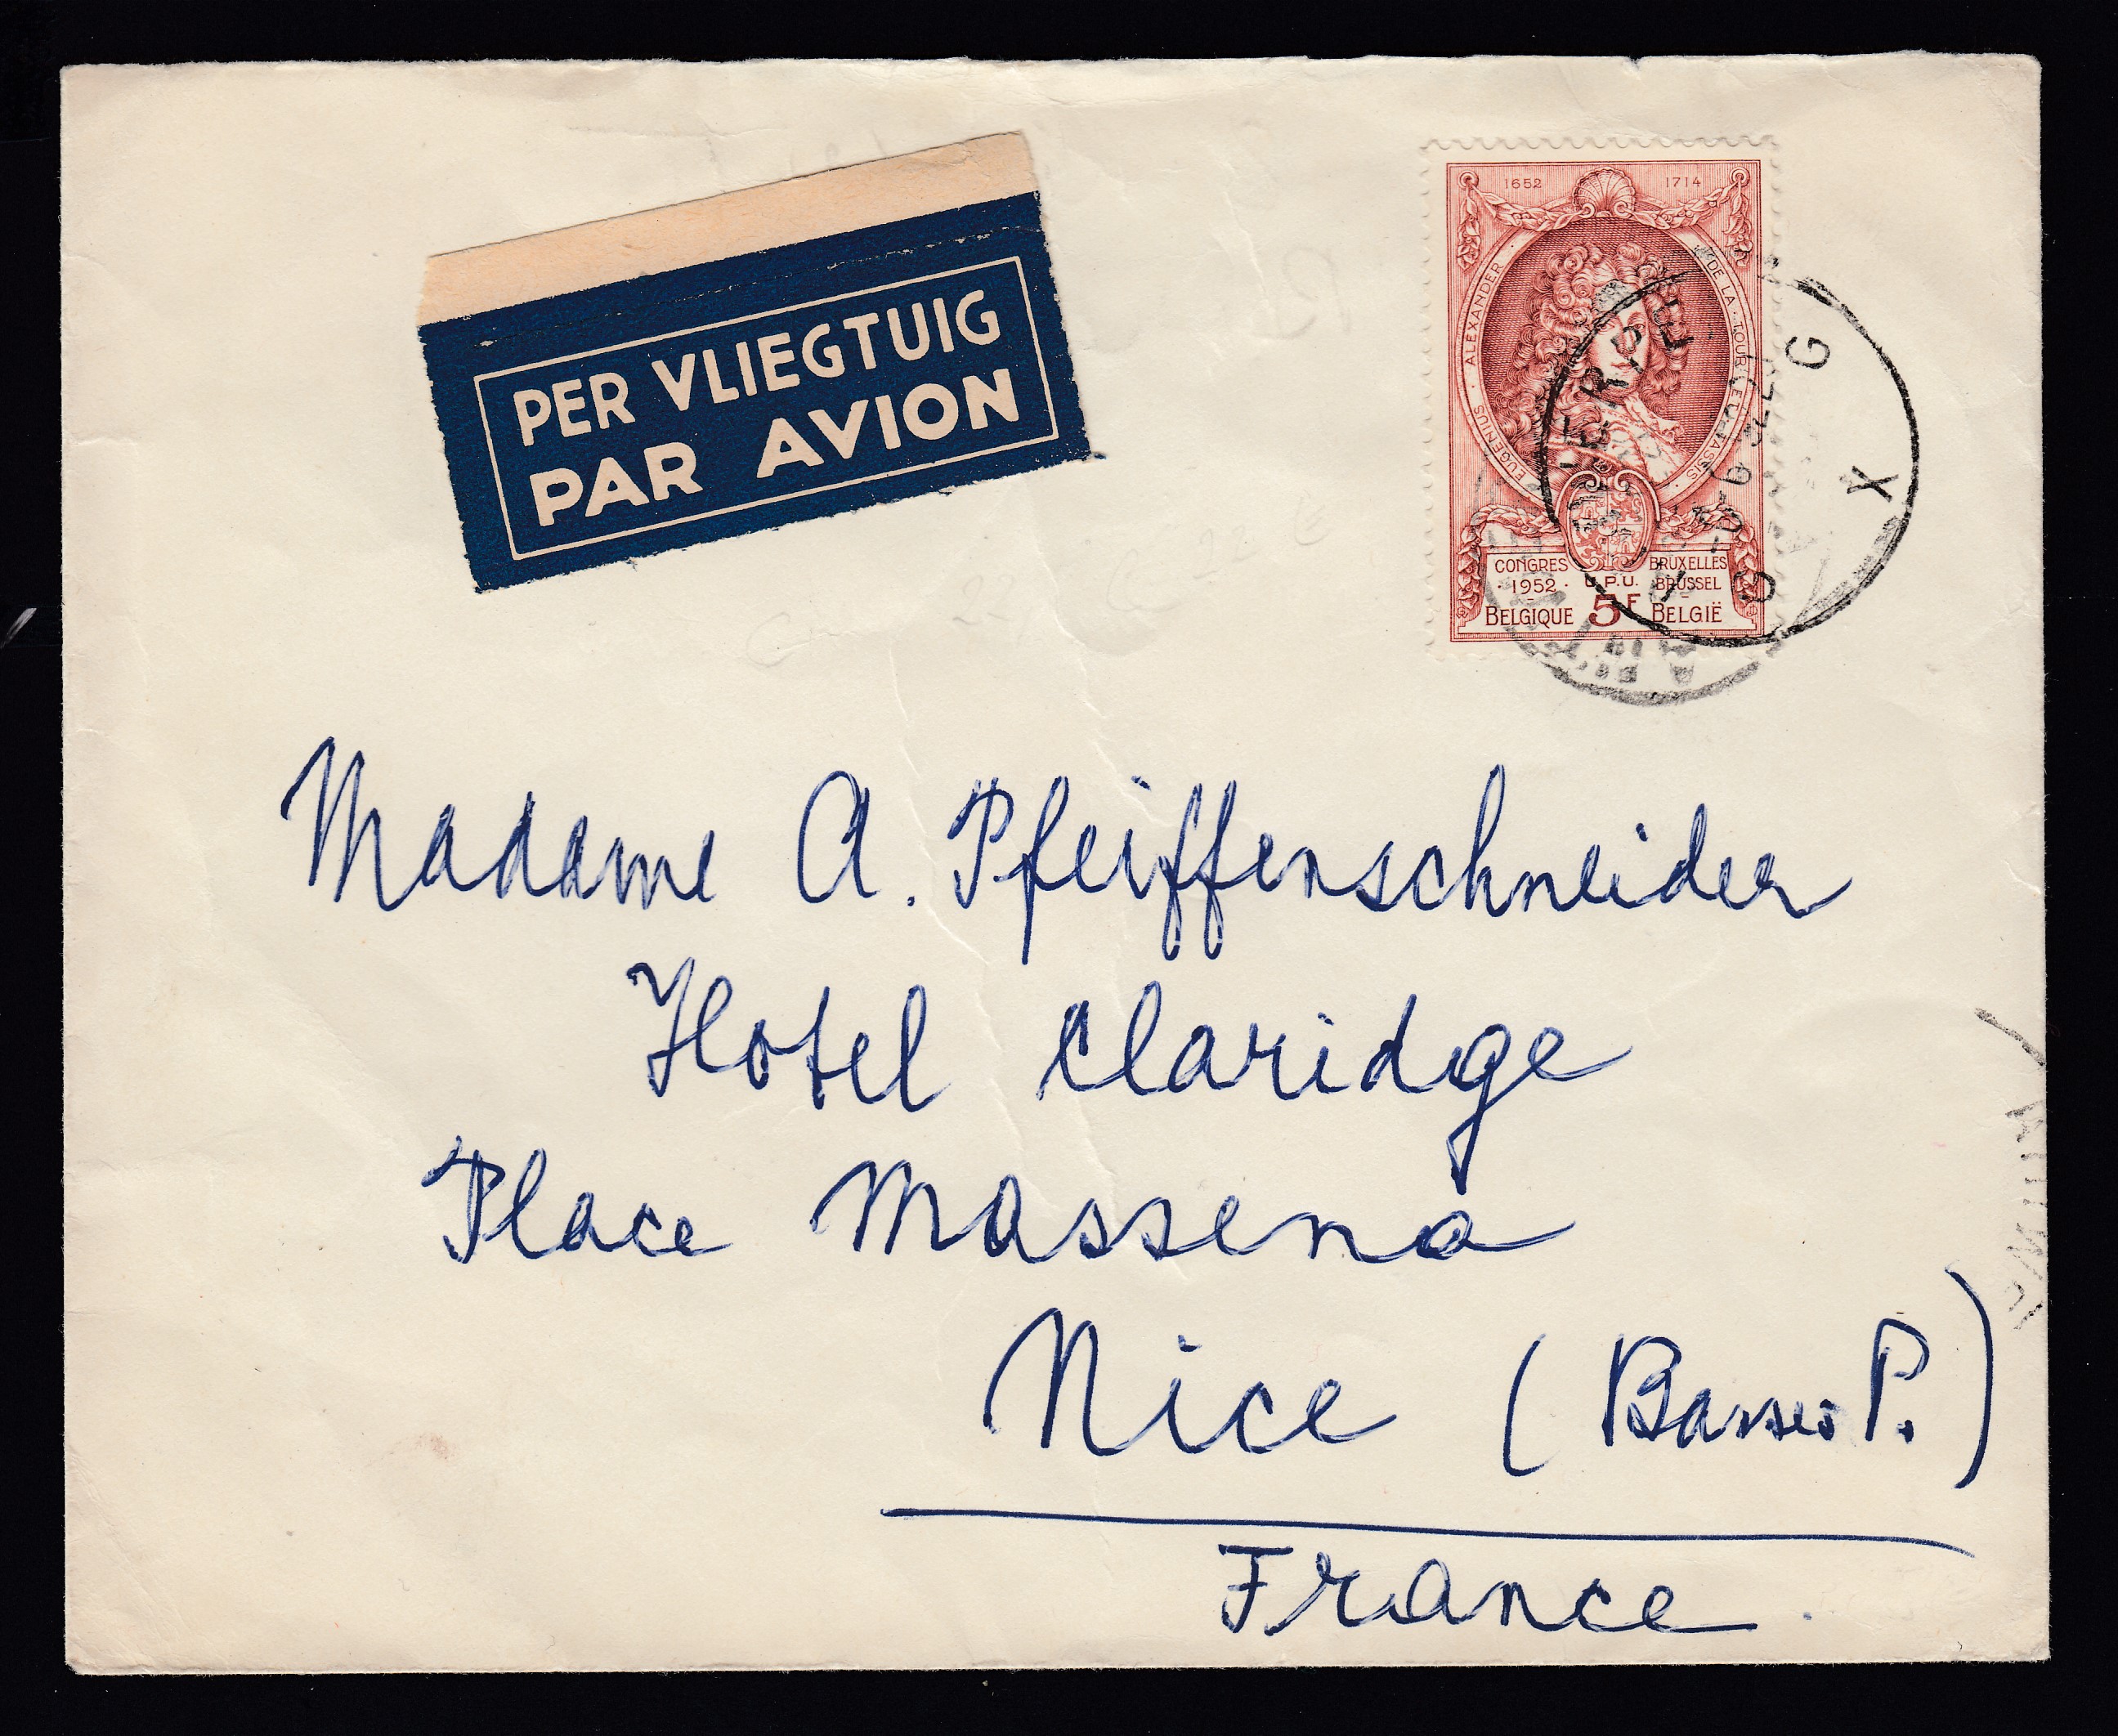 PER VLIEGTUIG
PAR AVION
1652 1714
EUGENIUS · ALEXANDER DE LA · TOUR ET TASSIS
CONGRES BRUXELLES
· 1952 · U.P.U. BRUSSEL
BELGIQUE 5F BELGIË
G X G
Madame A. Pfeiffenschneider
Hotel Claridge
Place Massena
Nice (Basses P.)
France